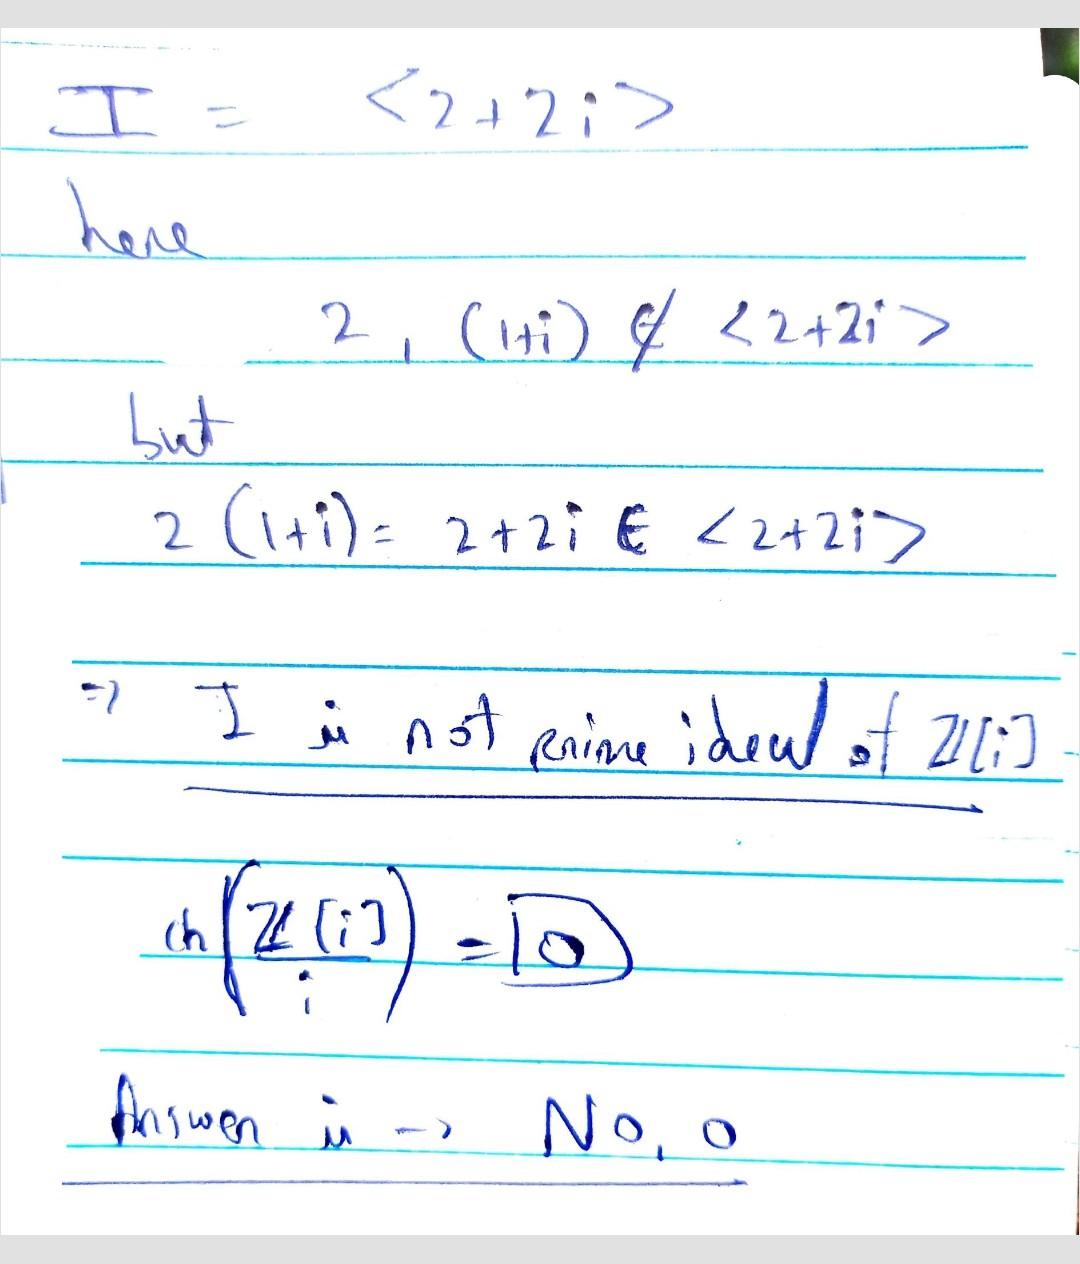 I = <2+2i>
here
2, (1+i) ∉ <2+2i>
but
2 (1+i) = 2+2i ∈ <2+2i>
=> I is not prime ideal of ℤ[i]
ch (ℤ[i] / i) = 0
Answer is -> No, 0